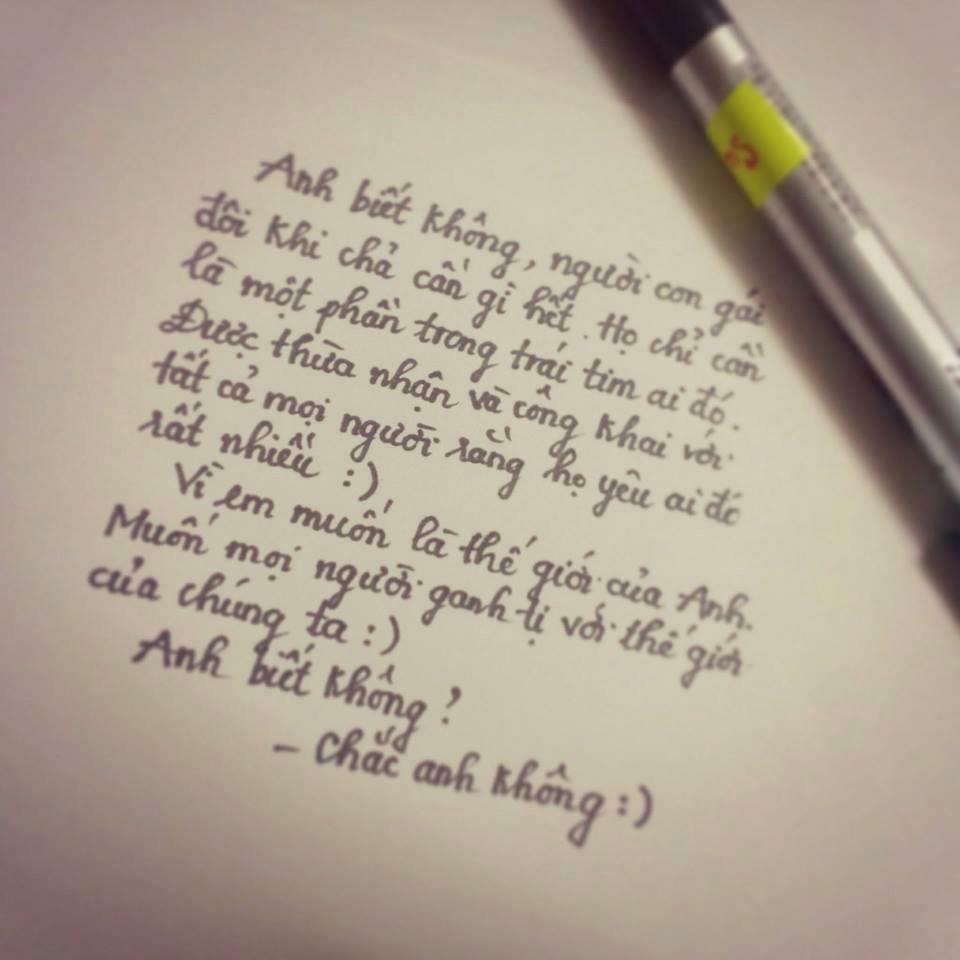 Anh biết không, người con gái
đôi khi chả cần gì hết. Họ chỉ cần
là một phần trong trái tim ai đó.
Được thừa nhận và công khai với
tất cả mọi người rằng họ yêu ai đó
rất nhiều :)
Vì em muốn là thế giới của Anh.
Muốn mọi người ganh tị với thế giới
của chúng ta :)
Anh biết không?
- Chắc anh không :)
05